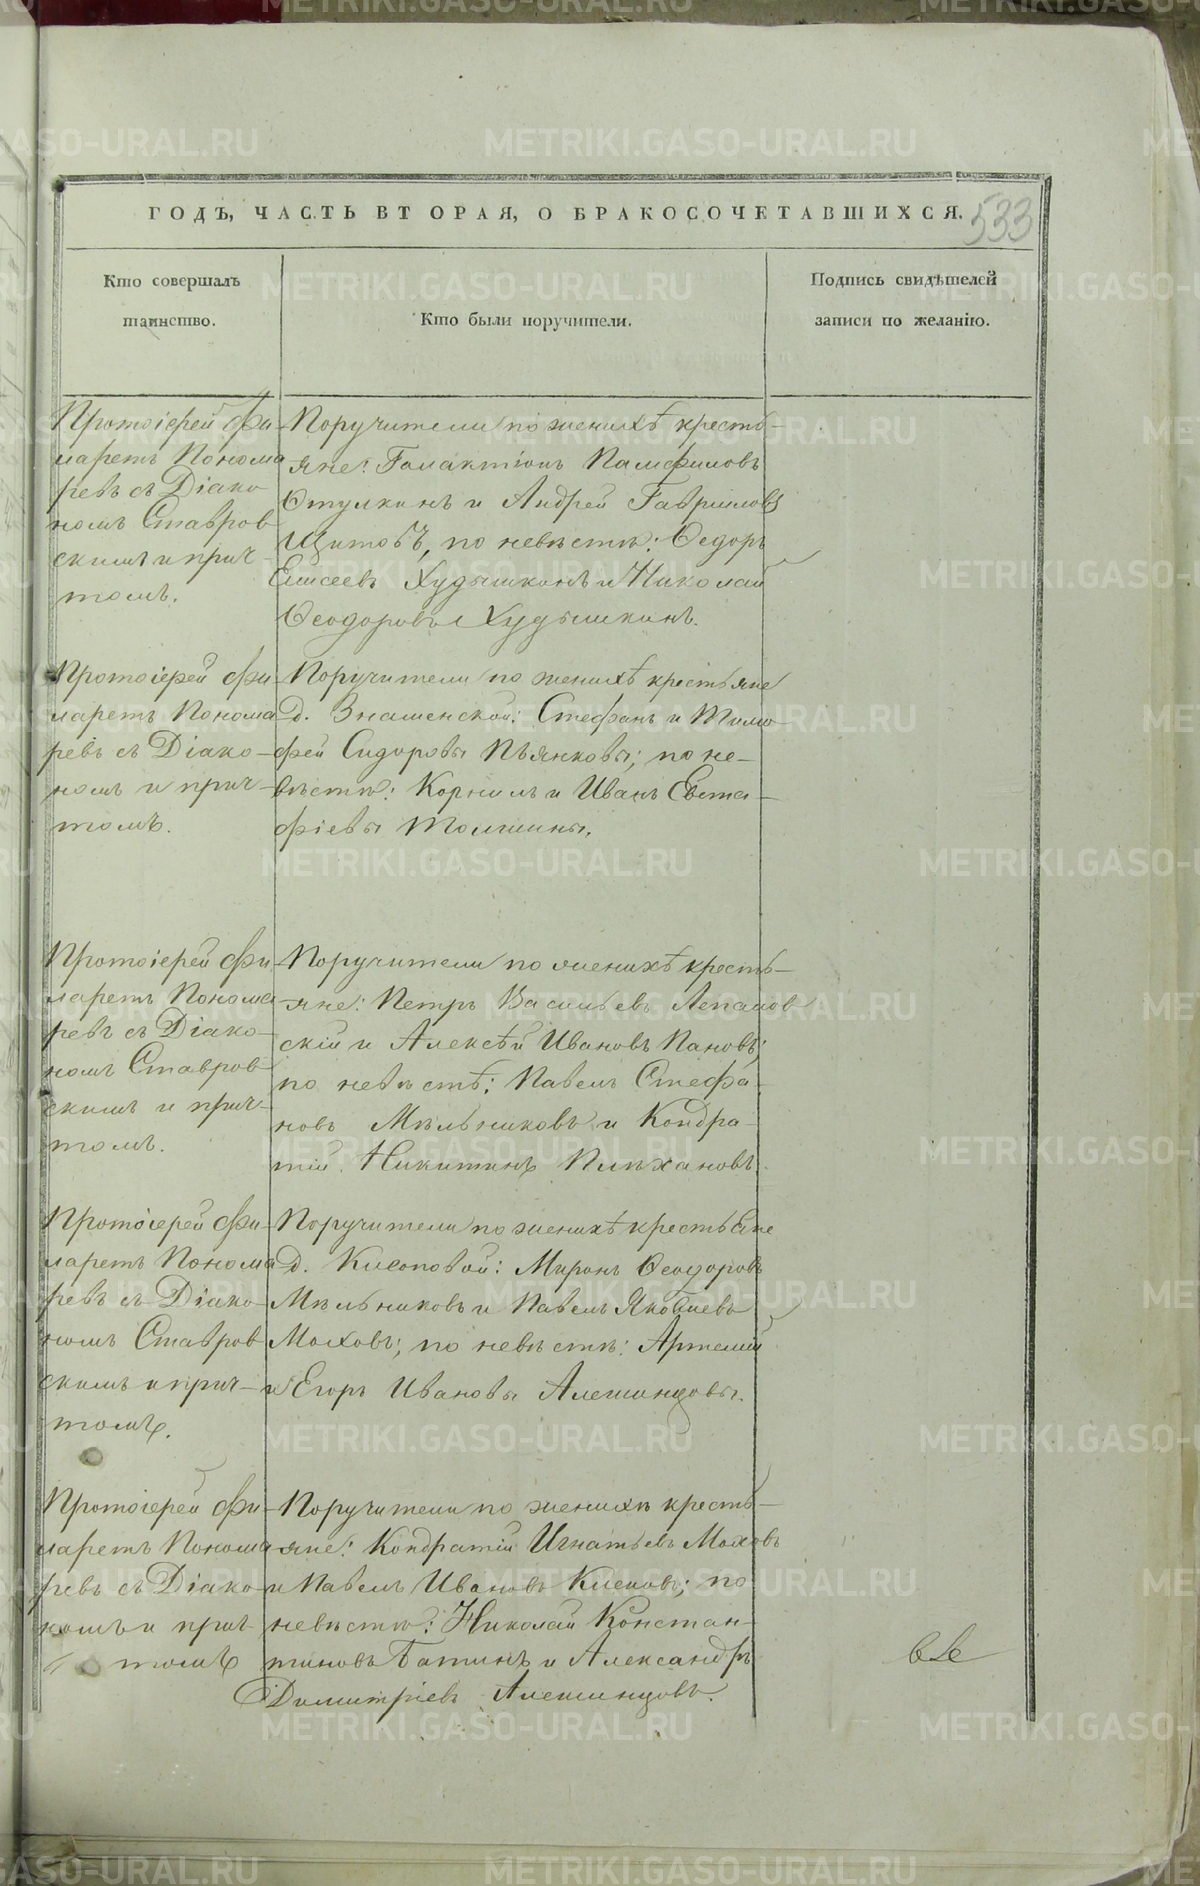 ГОДЪ, ЧАСТЬ ВТОРАЯ, О БРАКОСОЧЕТАВШИХСЯ.
533
Кто совершалъ
таинство.
Кто были поручители.
Подпись свидѣтелей
записи по желанію.
Протоіерей Фи-
ларетъ Понома
ревъ съ Діако
номъ Ставров
скимъ и прич-
томъ.
Поручители по женихѣ кресть-
яне: Галактіонъ Памфиловъ
Стулкинъ и Андрей Гавриловъ
Щитовъ, по невѣстѣ: Ѳедоръ
Елисеевъ Худышкинъ и Николай
Ѳеодоровъ Худышкинъ.
Протоіерей Фи-
ларетъ Понома
ревъ съ Діако-
номъ и прич-
томъ.
Поручители по женихѣ крестьяне
д. Знаменской: Стефанъ и Тимо-
фей Сидоровы Пьянковы; по не-
вѣстѣ: Корнилъ и Иванъ Евста-
фіевы Толшины.
Протоіерей Фи-
ларетъ Понома
ревъ съ Діако-
номъ Ставров
скимъ и прич-
томъ.
Поручители по женихѣ кресть-
яне: Петръ Васильевъ Лепалов
скій и Алексѣй Ивановъ Пановъ;
по невѣстѣ: Павелъ Стефа-
новъ Мѣльниковъ и Кондра-
тій Никитинъ Плѣхановъ.
Протоіерей Фи-
ларетъ Понома
ревъ съ Діако-
номъ Ставров
скимъ и прич-
томъ.
Поручители по женихѣ крестьяне
д. Кисловой: Миронъ Ѳеодоровъ
Мѣльниковъ и Павелъ Яковлевъ
Моховъ; по невѣстѣ: Артемій
и Егоръ Ивановы Алешинцовы.
Протоіерей Фи-
ларетъ Понома
ревъ съ Діако-
номъ и прич-
томъ
Поручители по женихѣ кресть-
яне: Кондратій Игнатьевъ Моховъ
и Павелъ Ивановъ Клеповъ; по
невѣстѣ: Николай Констан-
тиновъ Батинъ и Александръ
Димитріевъ Алешинцовъ.
METRIKI.GASO-URAL.RU